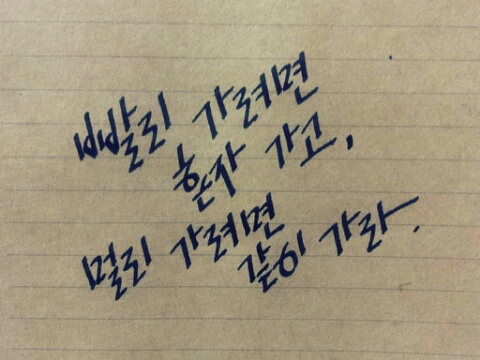 빨리 가려면
혼자 가고,
멀리 가려면
같이 가라.